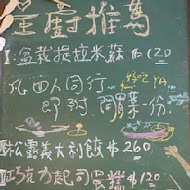 主廚推薦
1.盆栽提拉米蘇 $120
好吃
凡四人同行
即附開胃菜一份
松露義大利餃 $260
巧克力起司蛋糕 $120